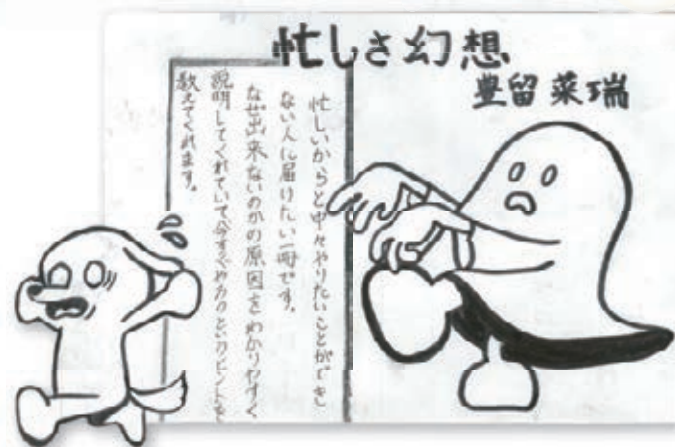 忙しさ幻想
豊留菜瑞
忙しいからと中々やりたいことができ
ない人に届けたい一冊です。
なぜ出来ないのかの原因をわかりやすく
説明してくれていて今すぐやカクというヒントを
教えてくれます。